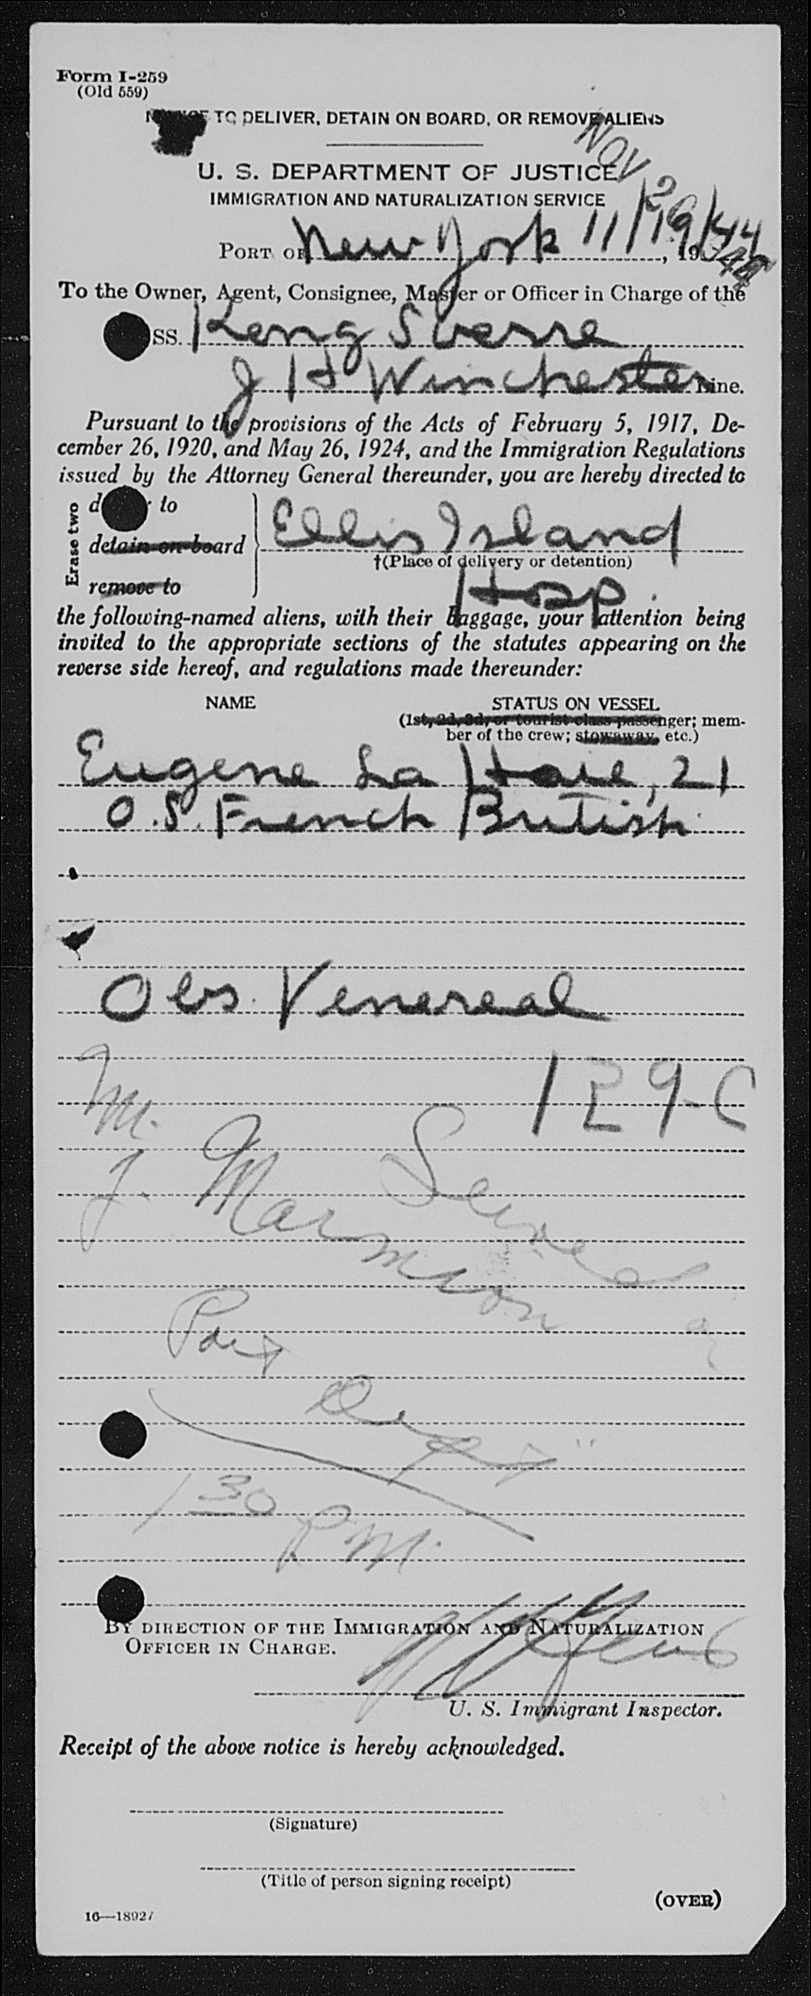 Form I-259
(Old 559)
TO DELIVER, DETAIN ON BOARD, OR REMOVE ALIENS
U. S. DEPARTMENT OF JUSTICE
NOV 26
IMMIGRATION AND NATURALIZATION SERVICE
PORT OF New York 11/19/44, 19
To the Owner, Agent, Consignee, Master or Officer in Charge of the
SS. Kong Sverre
J H Winchester Line.
Pursuant to the provisions of the Acts of February 5, 1917, De-
cember 26, 1920, and May 26, 1924, and the Immigration Regulations
issued by the Attorney General thereunder, you are hereby directed to
Erase two
to
detain on board
remove to
Ellis Island
†(Place of delivery or detention)
Hosp.
the following-named aliens, with their baggage, your attention being
invited to the appropriate sections of the statutes appearing on the
reverse side hereof, and regulations made thereunder:
NAME
STATUS ON VESSEL
(1st, 2d, 3d, or tourist class passenger; mem-
ber of the crew; stowaway, etc.)
Eugene La Haie, 21
O.S. French British
Obs. Venereal
129-C
M.
J. Marmion
Served
Port
Dept
1 30 PM.
BY DIRECTION OF THE IMMIGRATION AND NATURALIZATION
OFFICER IN CHARGE.
U. S. Immigrant Inspector.
Receipt of the above notice is hereby acknowledged.
(Signature)
(Title of person signing receipt)
(OVER)
16—18927